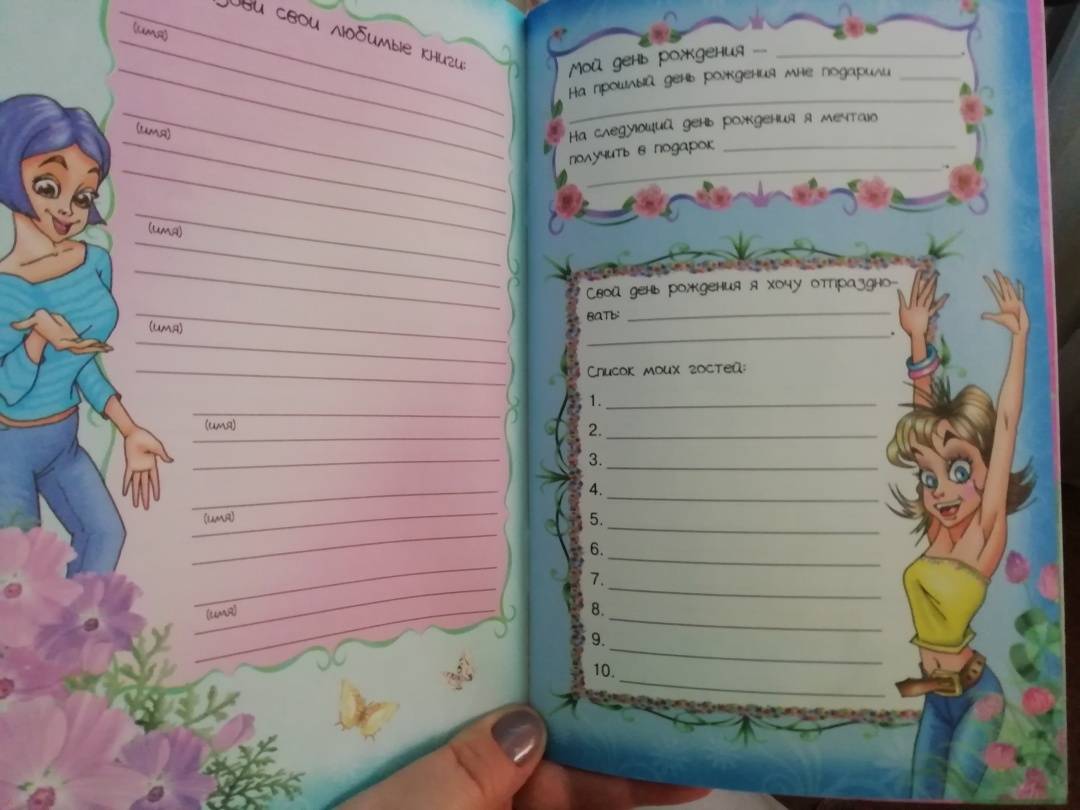 свои любимые книги:
(имя)
(имя)
(имя)
(имя)
(имя)
(имя)
(имя)
Мой день рождения —
На прошлый день рождения мне подарили
На следующий день рождения я мечтаю
получить в подарок
Свой день рождения я хочу отпраздно-
вать:
Список моих гостей:
1.
2.
3.
4.
5.
6.
7.
8.
9.
10.